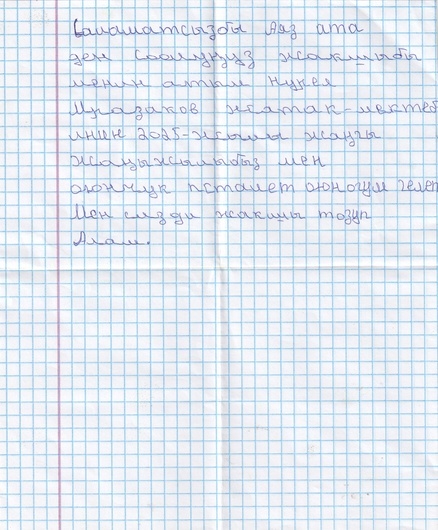 Саламатсызбы Аяз ата
ден соолуңуз жакшыбы
менин атым Нукел
Мразаков жатак-мектеб
инин 2025-жылы жаңы
жаңыжылыбыз мен
оюнчук псталет оюногум гелет
Мен сизди жакшы тозуп
Алам.